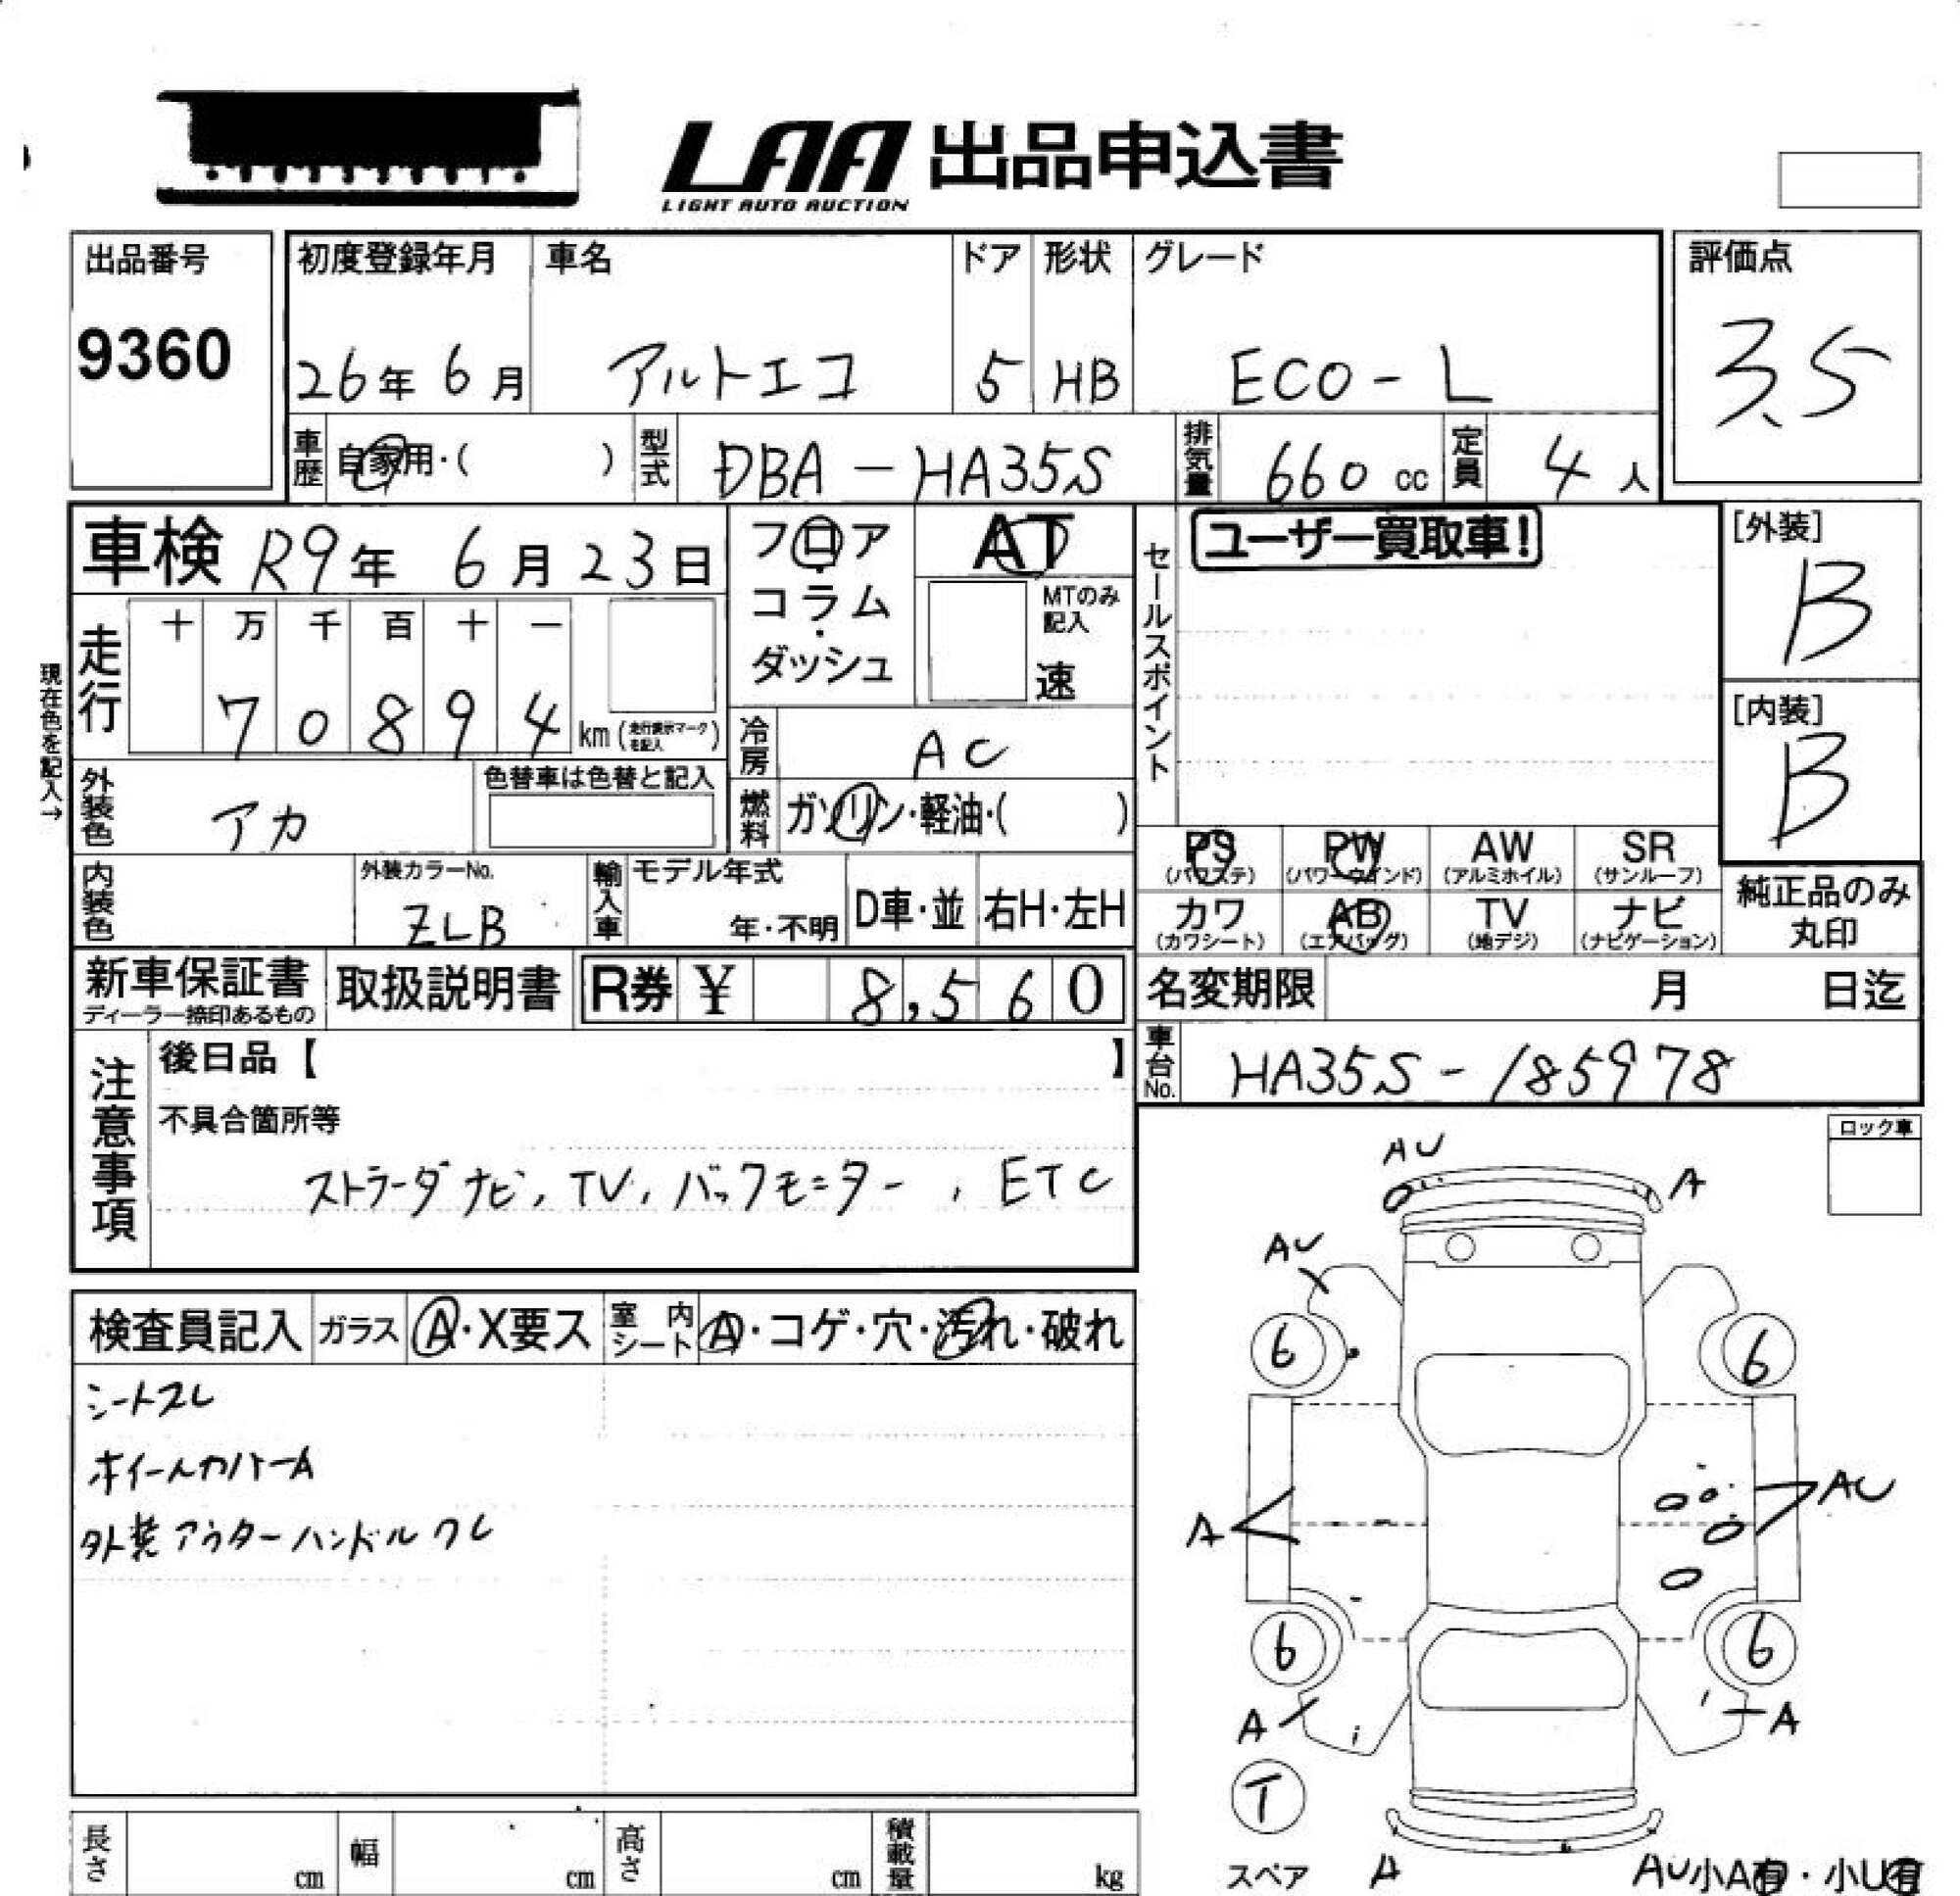 LAA 出品申込書
LIGHT AUTO AUCTION
出品番号
9360
初度登録年月
26年 6月
車名
アルトエコ
ドア
5
形状
HB
グレード
ECO-L
評価点
3.5
車歴 自家用・( )
型式 DBA-HA35S
排気量 660 cc
定員 4 人
車検 R9年 6月 23日
フロア・コラム・ダッシュ
AT
MTのみ記入
速
セールスポイント
ユーザー買取車!
[外装]
B
[内装]
B
現在色を記入→
走行
十 万 千 百 十 一
7 0 8 9 4 km (走行表示マークを記入)
冷房 AC
燃料 ガソリン・軽油・( )
外装色 アカ
色替車は色替と記入
内装色
外装カラーNo.
ZLB
輸入車
モデル年式
年・不明
D車・並
右H・左H
PS (パワステ)
PW (パワーウインド)
AW (アルミホイル)
SR (サンルーフ)
カワ (カワシート)
AB (エアバッグ)
TV (地デジ)
ナビ (ナビゲーション)
純正品のみ丸印
新車保証書
ディーラー捺印あるもの
取扱説明書
R券 ¥ 8,560
名変期限 月 日迄
車台No. HA35S-185978
注意事項
後日品【 】
不具合箇所等
ストラーダナビ, TV, バックモニター, ETC
ロック車
検査員記入
ガラス A・X要ス
室内シート A・コゲ・穴・汚れ・破れ
シートスレ
ホイールカバーA
外装アウターハンドルワレ
AU
A
AU
6
6
A
AU
6
6
A
A
T
スペア
A
AU
小A有・小U有
長さ cm
幅 cm
高さ cm
積載量 kg